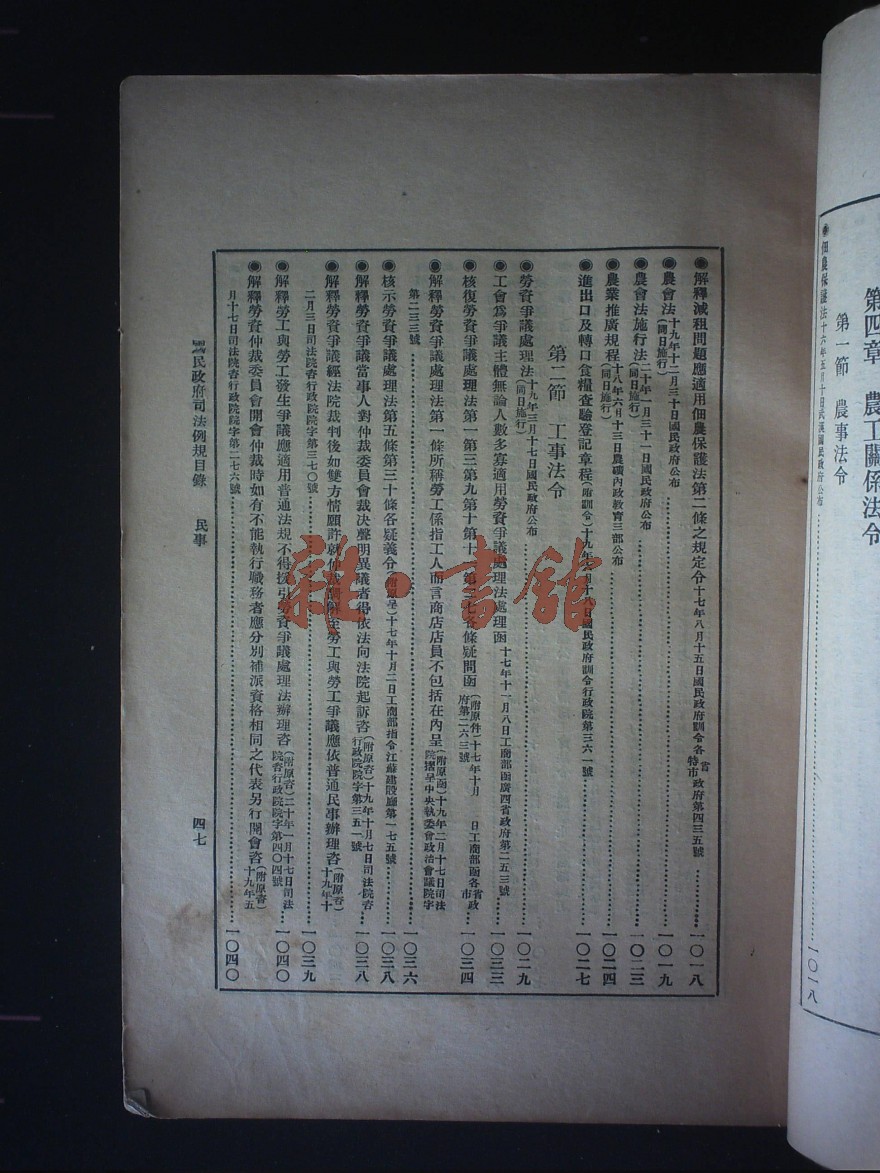 第四章　農工關係法令
第一節　農事法令
◉佃農保護法十六年五月十日武漢國民政府公布……一〇一八
◉解釋減租問題應適用佃農保護法第二條之規定令十七年八月十五日國民政府訓令各省特市政府第四三五號……一〇一八
◉農會法十九年十二月三十日國民政府公布(同日施行)……一〇一九
◉農會法施行法二十年一月三十一日國民政府公布(同日施行)……一〇二三
◉農業推廣規程十八年六月十三日農礦內政教育三部公布(同日施行)……一〇二四
◉進出口及轉口食糧查驗登記章程(附訓令)十九年 月十八日國民政府訓令行政院第三六一號……一〇二七
第二節　工事法令
◉勞資爭議處理法十九年三月十七日國民政府公布(同日施行)……一〇二九
◉工會為爭議主體無論人數多寡適用勞資爭議處理法處理函十七年十一月八日工商部函廣西省政府第二五三號……一〇三三
◉核復勞資爭議處理法第一第三第九第十第十 第三七各條疑問函(附原件)十七年十月　日工商部函各省市政府第二六三號……一〇三四
◉解釋勞資爭議處理法第一條所稱勞工係指工人而言商店店員不包括在內呈(附原函)十九年二月十七日司法院 呈中央執委會政治會議院字
第二三三號……一〇三六
◉核示勞資爭議處理法第五條第三十條各疑義令(附原呈)十七年十月二日工商部指令江蘇建設廳第一七五號……一〇三八
◉解釋勞資爭議當事人對仲裁委員會裁決聲明異議者得依法向法院起訴咨(附原咨)十九年十月七日司法院咨行政院院字第三五一號……一〇三八
◉解釋勞資爭議經法院裁判後如雙方情願許就仲裁調解至勞工與勞工爭議應依普通民事辦理咨(附原咨)十九年十
二月三日司法院咨行政院院字第三七〇號……一〇三九
◉解釋勞工與勞工發生爭議應適用普通法規不得援引勞資爭議處理法辦理咨(附原咨)二十年一月十七日司法院咨行政院院字第四〇四號……一〇四〇
◉解釋勞資仲裁委員會開會仲裁時如有不能執行職務者應分別補派資格相同之代表另行開會咨(附原咨)十九年五
月十七日司法院咨行政院院字第二七六號……一〇四〇
國民政府司法例規目錄　民事　四七
雜·書館